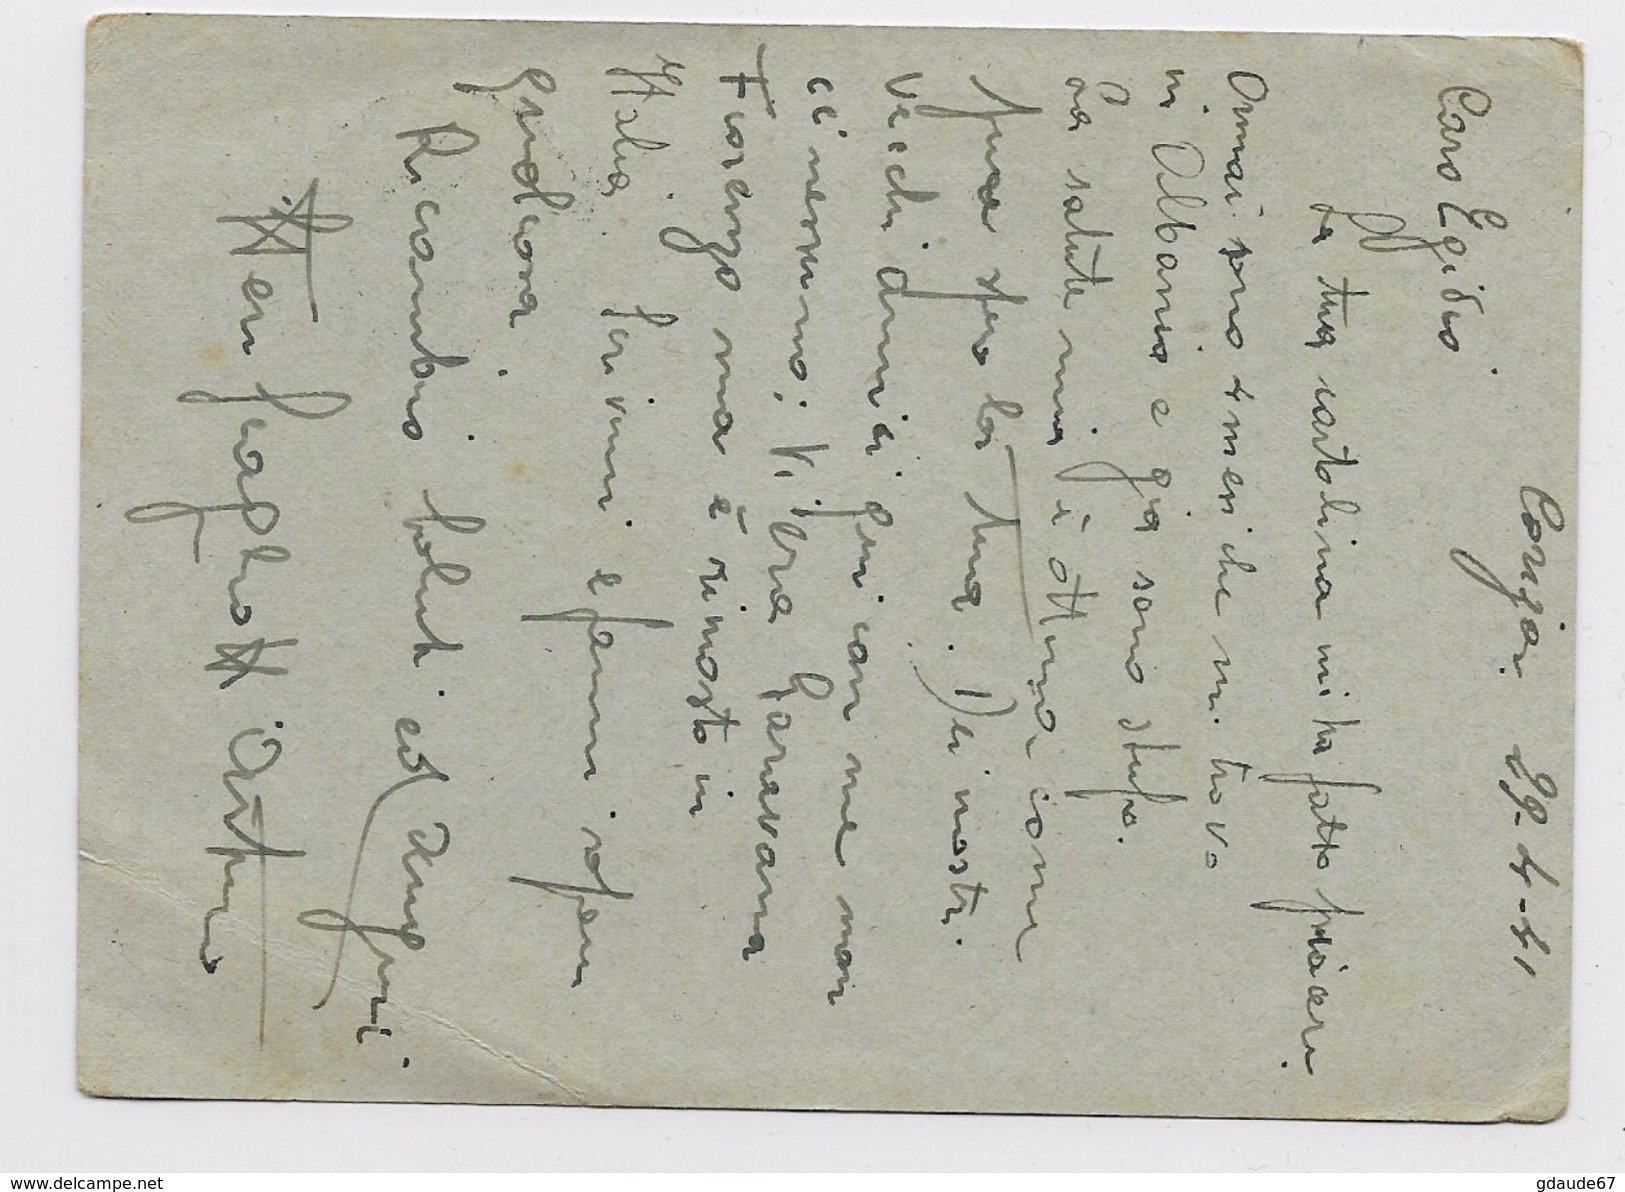 29-4-41
Caro Egidio
La tua cartolina mi ha fatto piacere.
Ormai sono 4 mesi che mi trovo
in Albania e già sono stufo.
La salute mia è ottima come
pure spero la tua. Dei nostri
vecchi amici qui con me non
ci nessuno; Vi era Garavana
Fiorenzo ma è rimosto in
Italia. Scrivimi e fammi sapere
qualcosa
Ricambio saluti ed auguri.
Arturo
www.delcampe.net
gdaude67